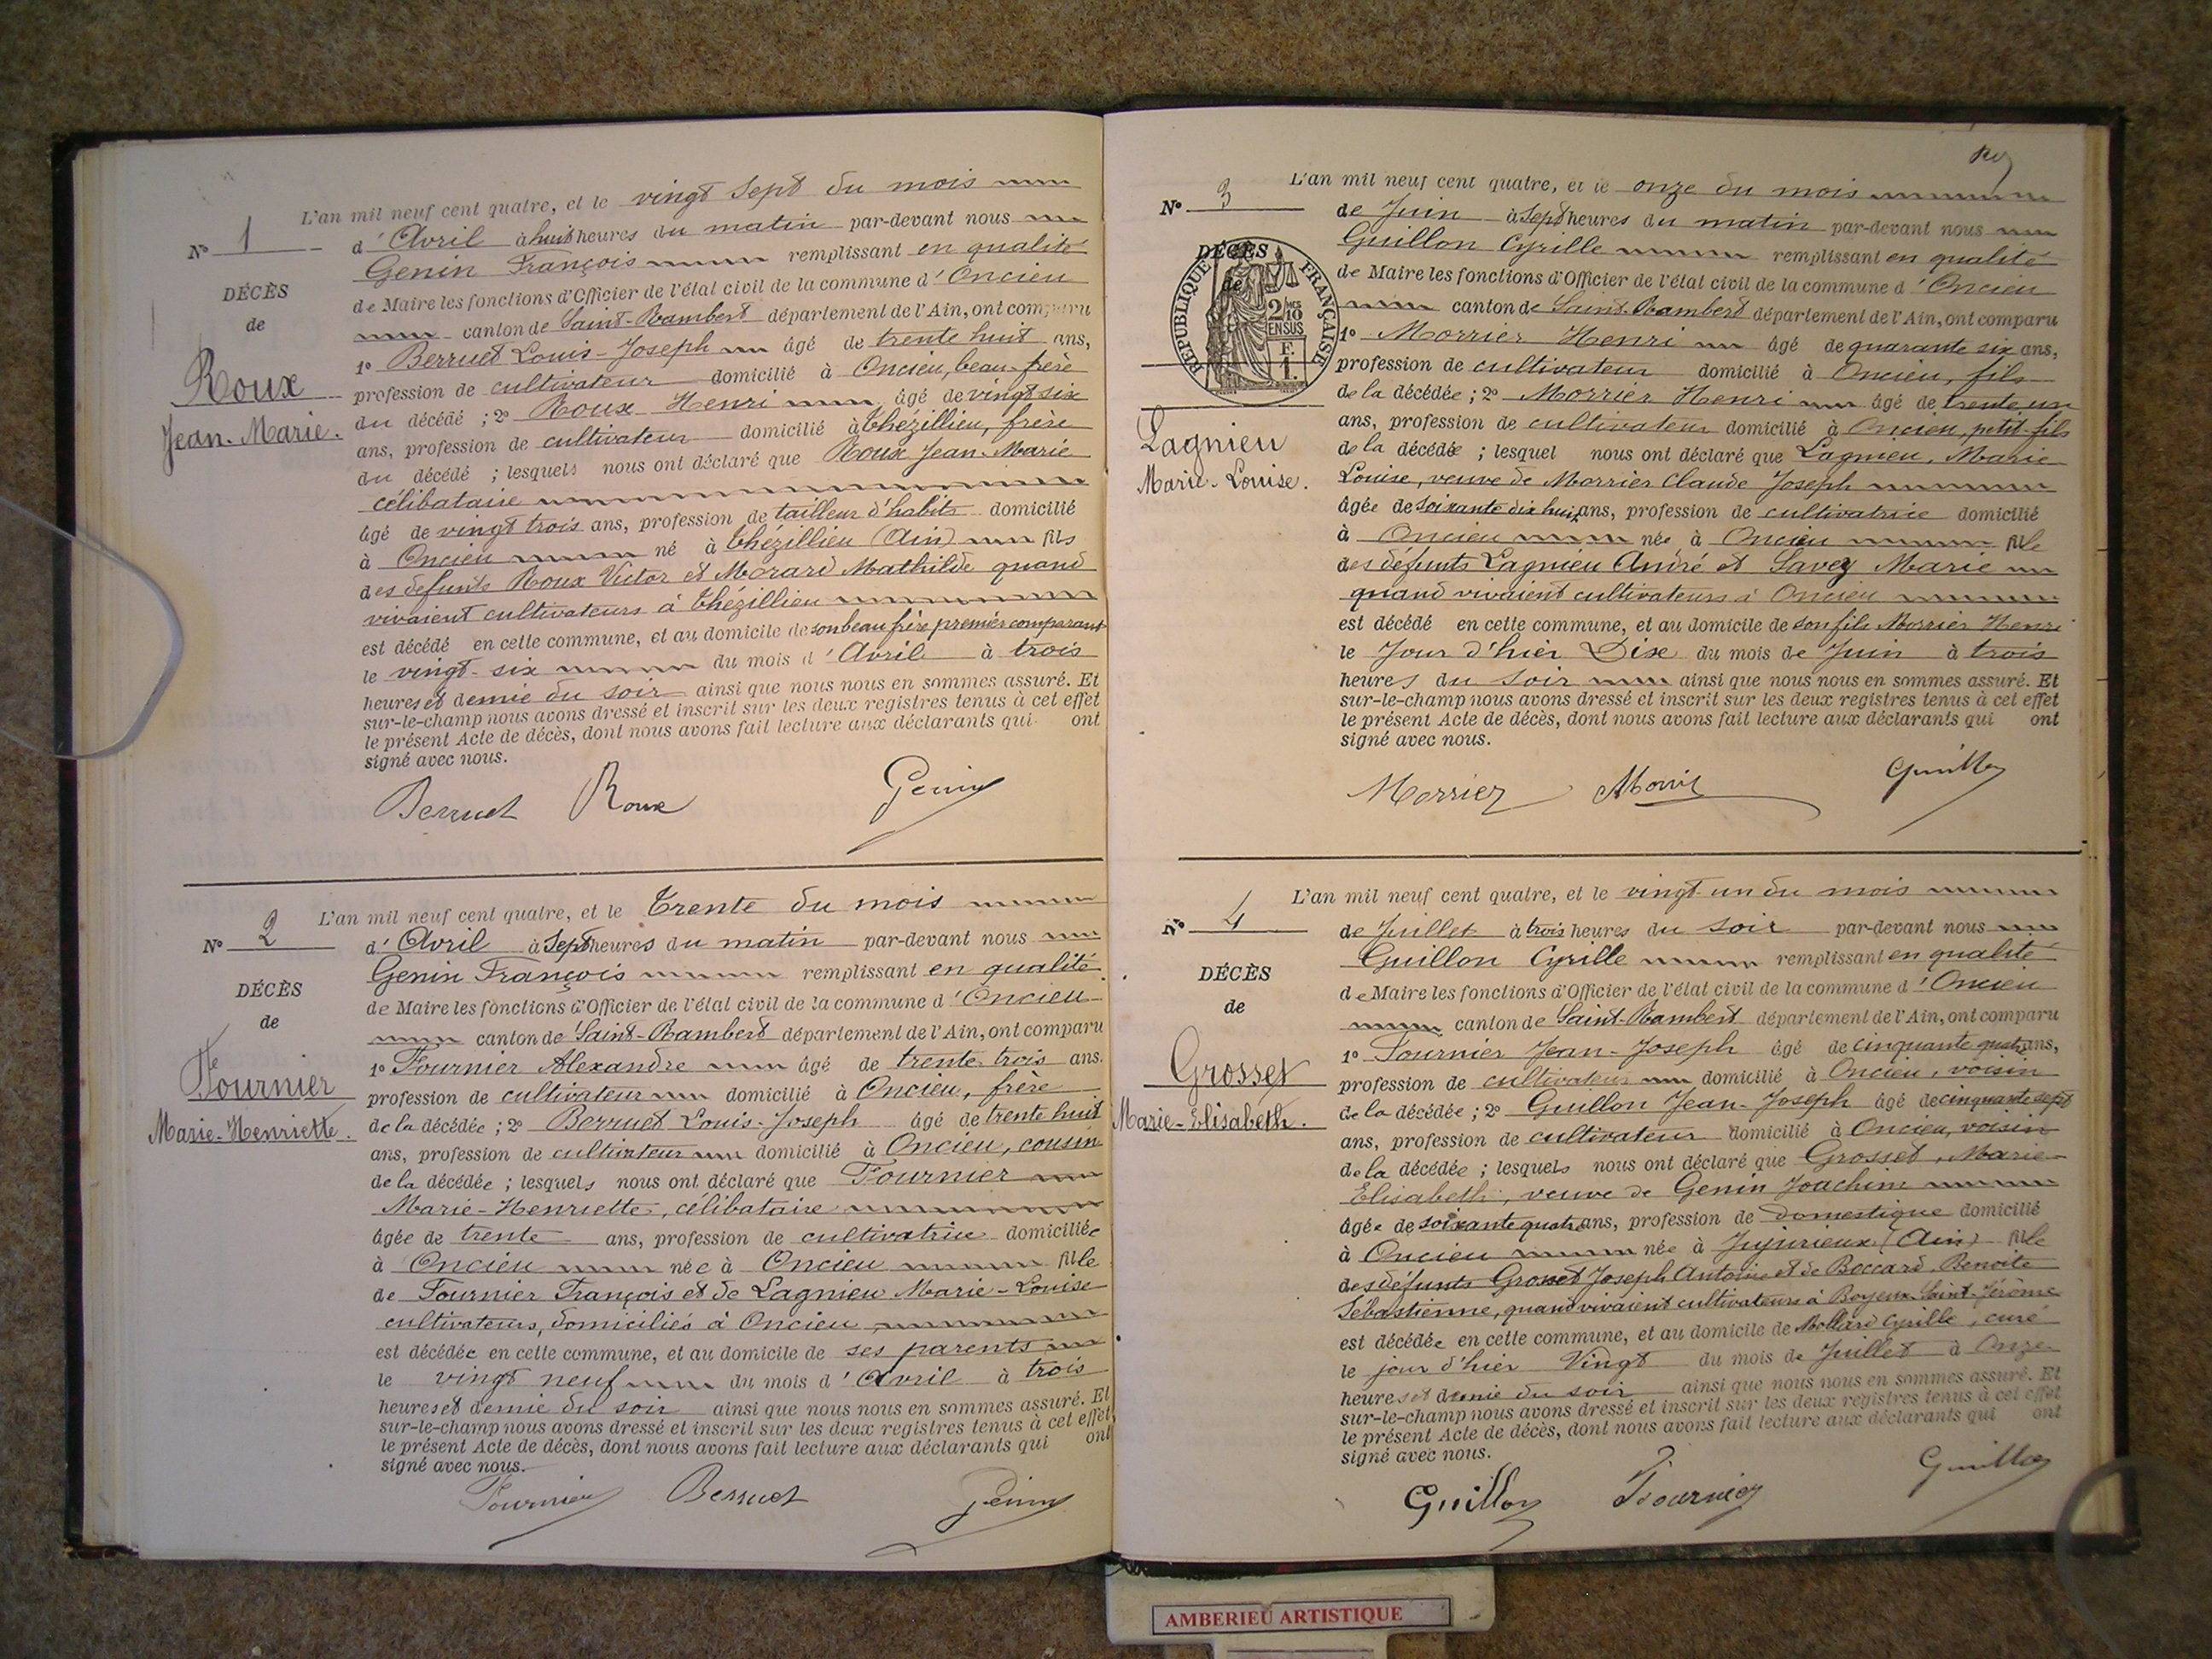 L'an mil neuf cent quatre, et le vingt sept du mois
N° 1
d'Avril à huit heures du matin par-devant nous
Genin François remplissant en qualité
DÉCÈS
de Maire les fonctions d'Officier de l'état civil de la commune d'Oncieu
de
canton de Saint-Rambert département de l'Ain, ont comparu
1° Berruet Louis-Joseph âgé de trente huit ans,
Roux
profession de cultivateur domicilié à Oncieu, beau-frère
Jean-Marie.
du décédé ; 2° Roux Henri âgé de vingt six
ans, profession de cultivateur domicilié à Thézillieu, frère
du décédé ; lesquels nous ont déclaré que Roux Jean-Marie
célibataire
âgé de vingt trois ans, profession de tailleur d'habits domicilié
à Oncieu né à Thézillieu (Ain) fils
des defunts Roux Victor et Morard Mathilde quand
vivaient cultivateurs à Thézillieu
est décédé en cette commune, et au domicile de son beau frère premier comparant
le vingt-six du mois d'Avril à trois
heures et demie du soir ainsi que nous nous en sommes assuré. Et
sur-le-champ nous avons dressé et inscrit sur les deux registres tenus à cet effet
le présent Acte de décès, dont nous avons fait lecture aux déclarants qui ont
signé avec nous.
Berruet Roux Genin
L'an mil neuf cent quatre, et le Trente du mois
N° 2
d'Avril à Sept heures du matin par-devant nous
Genin François remplissant en qualité
DÉCÈS
de Maire les fonctions d'Officier de l'état civil de la commune d'Oncieu
de
canton de Saint-Rambert département de l'Ain, ont comparu
1° Fournier Alexandre âgé de trente-trois ans.
Fournier
profession de cultivateur domicilié à Oncieu, frère
Marie-Henriette.
de la décédée ; 2° Berruet Louis-Joseph âgé de trente huit
ans, profession de cultivateur domicilié à Oncieu, cousin
de la décédée ; lesquels nous ont déclaré que Fournier
Marie-Henriette, célibataire
âgée de trente ans, profession de cultivatrice domiciliée
à Oncieu née à Oncieu fille
de Fournier François et de Lagnieu Marie-Louise
cultivateurs, domiciliés à Oncieu
est décédée en cette commune, et au domicile de ses parents
le vingt neuf du mois d'avril à trois
heures et demie du soir ainsi que nous nous en sommes assuré. Et
sur-le-champ nous avons dressé et inscrit sur les deux registres tenus à cet effet
le présent Acte de décès, dont nous avons fait lecture aux déclarants qui ont
signé avec nous.
Fournier Berruet Genin
L'an mil neuf cent quatre, et le onze du mois
N° 3
de Juin à Sept heures du matin par-devant nous
Guillon Cyrille remplissant en qualité
DÉCÈS
de Maire les fonctions d'Officier de l'état civil de la commune d'Oncieu
de
RÉPUBLIQUE FRANÇAISE
2/10 EN SUS
F. 1.
canton de Saint-Rambert département de l'Ain, ont comparu
1° Morrier Henri âgé de quarante six ans,
profession de cultivateur domicilié à Oncieu, fils
de la décédée ; 2° Morrier Henri âgé de trente un
Lagnieu
ans, profession de cultivateur domicilié à Oncieu, petit-fils
de la décédée ; lesquel nous ont déclaré que Lagnieu, Marie
Marie-Louise.
Louise, veuve de Morrier Claude Joseph
âgée de soixante dix huit ans, profession de cultivatrice domicilié
à Oncieu née à Oncieu fille
des défunts Lagnieu André et Savey Marie
quand vivaient cultivateurs à Oncieu
est décédé en cette commune, et au domicile de son fils Morrier Henri
le Jour d'hier Dix du mois de Juin à trois
heures du soir ainsi que nous nous en sommes assuré. Et
sur-le-champ nous avons dressé et inscrit sur les deux registres tenus à cet effet
le présent Acte de décès, dont nous avons fait lecture aux déclarants qui ont
signé avec nous.
Morrier
L'an mil neuf cent quatre, et le vingt-un du mois
N° 4
de Juillet à trois heures du soir par-devant nous
Guillon Cyrille remplissant en qualité
DÉCÈS
de Maire les fonctions d'Officier de l'état civil de la commune d'Oncieu
de
canton de Saint-Rambert département de l'Ain, ont comparu
1° Fournier Jean-Joseph âgé de cinquante quatre ans,
Grosset
profession de cultivateur domicilié à Oncieu, voisin
Marie-Elisabeth.
de la décédée ; 2° Guillon Jean-Joseph âgé de cinquante sept
ans, profession de cultivateur domicilié à Oncieu, voisin
de la décédée ; lesquels nous ont déclaré que Grosset, Marie-
Elisabeth, veuve de Genin Joachim
âgée de soixante quatre ans, profession de domestique domicilié
à Oncieu née à Jujurieux (Ain) fille
des défunts Grosset Joseph Antoine et de Boccard Benoite
Sébastienne, quand vivaient cultivateurs à Boyeux-Saint-Jérôme
est décédée en cette commune, et au domicile de Mollard Cyrille, curé
le jour d'hier Vingt du mois de Juillet à Onze
heures et demie du soir ainsi que nous nous en sommes assuré. Et
sur-le-champ nous avons dressé et inscrit sur les deux registres tenus à cet effet
le présent Acte de décès, dont nous avons fait lecture aux déclarants qui ont
signé avec nous.
Guillon Fournier Guillon
AMBERIEU ARTISTIQUE